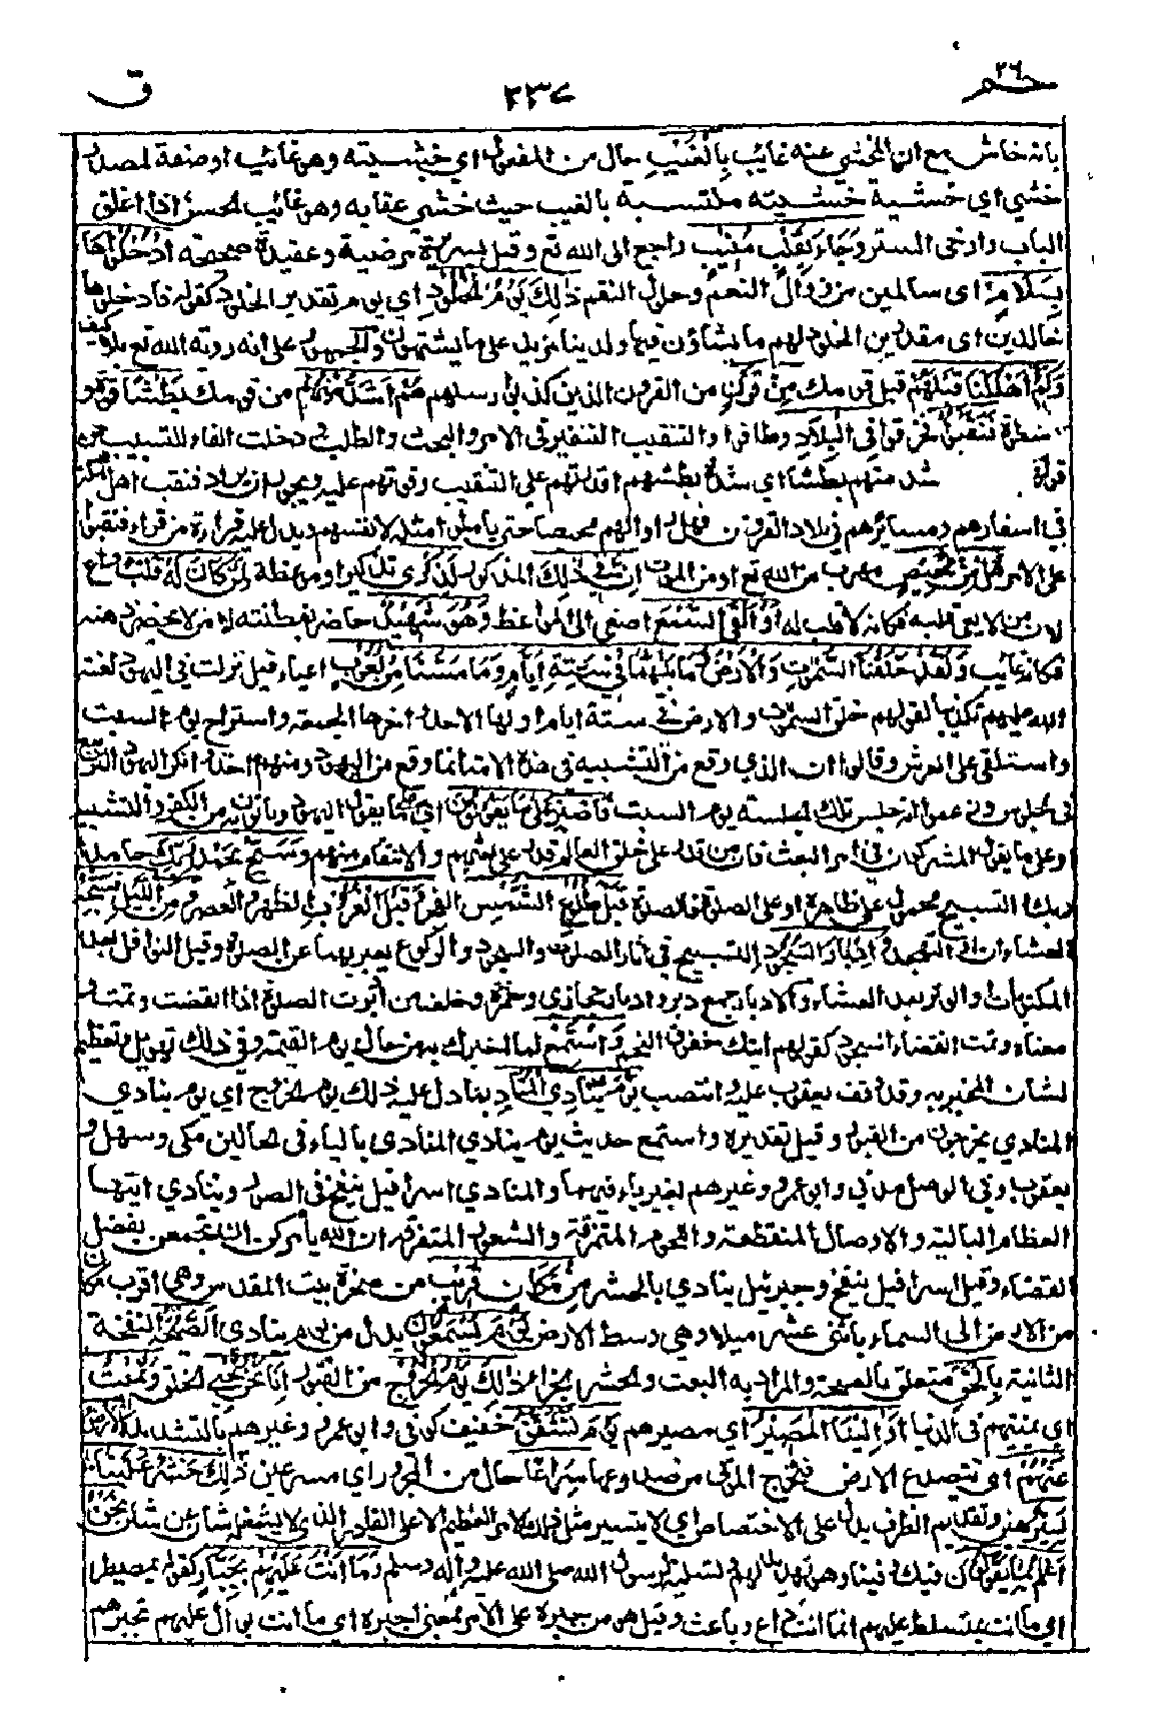 حم ٢٦ ٢٣٧ ق
بانه خاش مع ان المخشي عنه غائب بِالْغَيْبِ حال من المفعول اي خشيته وهو غائب او صفة لمصدر
خشي اي خشية خشيته ملتبسة بالغيب حيث خشي عقابه وهو غائب الحسن اذا اغلق
الباب وارخى الستر وَجَاءَ بِقَلْبٍ مُنِيبٍ راجع الى الله تع وقيل بسريرة مرضية وعقيدة صحيحة ادْخُلُوهَا
بِسَلَامٍ اي سالمين من زوال النعم وحلول النقم ذٰلِكَ يَوْمُ الْخُلُودِ اي يوم تقدير الخلود كقوله فادخلوها
خالدين اي مقدرين الخلود لهم ما يشاؤن فيها ولدينا مزيد على ما يشتهون والجمهور على انه رؤية الله تع بلا كيف
وَكَمْ أَهْلَكْنَا قَبْلَهُمْ قبل قومك مِنْ قَرْنٍ من القرون الذين كذبوا رسلهم هُمْ أَشَدُّ مِنْهُمْ من قومك بَطْشًا قوة و
سطوة فَنَقَّبُوا فخرقوا فِي الْبِلَادِ وطافوا والتنقيب التنقير في الامر والبحث والطلب ودخلت الفاء للتسبيب عن
قوله شد منهم بطشا اي شدة بطشهم اقدرتهم على التنقيب وقوتهم عليه ويجوز ان يراد فنقب اهل مكة
في اسفارهم ومسائرهم في بلاد القرون فهل راوا لهم محيصا حتى ياملوا مثله لانفسهم ويدل عليه قراءة من قراء فنقبوا
على الامر هَلْ مِنْ مَحِيصٍ مهرب من الله تع او من الموت إِنَّ فِي ذٰلِكَ المذكور لَذِكْرَى تذكيرا وموعظة لِمَنْ كَانَ لَهُ قَلْبٌ واع
لان من لا يعي قلبه فكانه لا قلب له أَوْ أَلْقَى السَّمْعَ اصغى الى المواعظ وَهُوَ شَهِيدٌ حاضر بفطنته لان من لا يحضر ذهنه
فكانه غائب وَلَقَدْ خَلَقْنَا السَّمٰوَاتِ وَالْأَرْضَ وَمَا بَيْنَهُمَا فِي سِتَّةِ أَيَّامٍ وَمَا مَسَّنَا مِنْ لُغُوبٍ اعياء قيل نزلت في اليهود لعنة
الله عليهم تكذيبا لقولهم خلق السموات والارض في ستة ايام اولها الاحد اخرها الجمعة واستراح يوم السبت
واستلقى على العرش وقالوا ان الذي وقع من التشبيه في هذه الامة انما وقع من اليهود ومنهم اخذ انكر اليهود التربيع
في الجلوس وزعموا انه جلس تلك الجلسة يوم السبت فَاصْبِرْ عَلَى مَا يَقُولُونَ اي على ما يقول اليهود وياتون به من الكفر والتشبيه
او على ما يقول المشركون في امر البعث فان من قدر على خلق العالم قدر على بعثهم والانتقام منهم وَسَبِّحْ بِحَمْدِ رَبِّكَ حامدا
ربك والتسبيح محمول على ظاهره او على الصلوة فالصلوة قَبْلَ طُلُوعِ الشَّمْسِ الفجر وَقَبْلَ الْغُرُوبِ الظهر والعصر وَمِنَ اللَّيْلِ فَسَبِّحْهُ
العشاءان او التهجد وَأَدْبَارَ السُّجُودِ التسبيح في آثار الصلوات والسجود والركوع يعبر بهما عن الصلوة وقيل النوافل بعد
المكتوبات والوتر بعد العشاء والادبار جمع دبر وادبار حجازي وحمزة وخلف من ادبرت الصلوة اذا انقضت وتمت و
معناه وقت انقضاء السجود كقولهم اتيتك خفوق النجم وَاسْتَمِعْ لما اخبرك به من حال يوم القيمة وفي ذلك تهويل وتعظيم
لشان المخبر به وقد وقف يعقوب عليه انتصب يَوْمَ يُنَادِي الْمُنَادِ بما دل عليه ذلك يوم الخروج اي يوم ينادي
المنادي يخرجون من القبور وقيل تقديره واستمع حديث يوم ينادي المنادي بالياء في الحالين مكي وسهل و
يعقوب وفي الوصل مدني وابو عمرو وغيرهم بغير ياء فيهما والمنادي اسرافيل ينفخ في الصور وينادي ايتها
العظام البالية والاوصال المنقطعة واللحوم المتمزقة والشعور المتفرقة ان الله يأمركن ان تجتمعن لفصل
القضاء وقيل اسرافيل ينفخ وجبرئيل ينادي بالمحشر مِنْ مَكَانٍ قَرِيبٍ من صخرة بيت المقدس وهي اقرب مكان
من الارض الى السماء باثني عشر ميلا وهي وسط الارض يَوْمَ يَسْمَعُونَ بدل من يوم ينادي الصَّيْحَةَ النفخة
الثانية بِالْحَقِّ متعلق بالصيحة والمراد به البعث والحشر للجزاء ذٰلِكَ يَوْمُ الْخُرُوجِ من القبور إِنَّا نَحْنُ نُحْيِي الخلق وَنُمِيتُ
اي نميتهم في الدنيا وَإِلَيْنَا الْمَصِيرُ اي مصيرهم يَوْمَ تَشَقَّقُ خفيف كوفي وابو عمرو وغيرهم بالتشديد الْأَرْضُ
عَنْهُمْ اي تتصدع الارض فتخرج الموتى من صدوعها سِرَاعًا حال من المجرور اي مسرعين ذٰلِكَ حَشْرٌ عَلَيْنَا
يَسِيرٌ هين وتقديم الظرف يدل على الاختصاص اي لا يتيسر مثل ذلك الامر العظيم الا على القادر الذي لا يشغله شان عن شان نَحْنُ
أَعْلَمُ بِمَا يَقُولُونَ فيك وفينا وهو تهديد لهم وتسلية لرسول الله صلى الله عليه وآله وسلم وَمَا أَنْتَ عَلَيْهِمْ بِجَبَّارٍ كقوله بمصيطر
اي ما انت بمتسلط عليهم انما انت داع وباعث وقيل هو من جبره على الامر بمعنى اجبره اي ما انت بوال عليهم تجبرهم